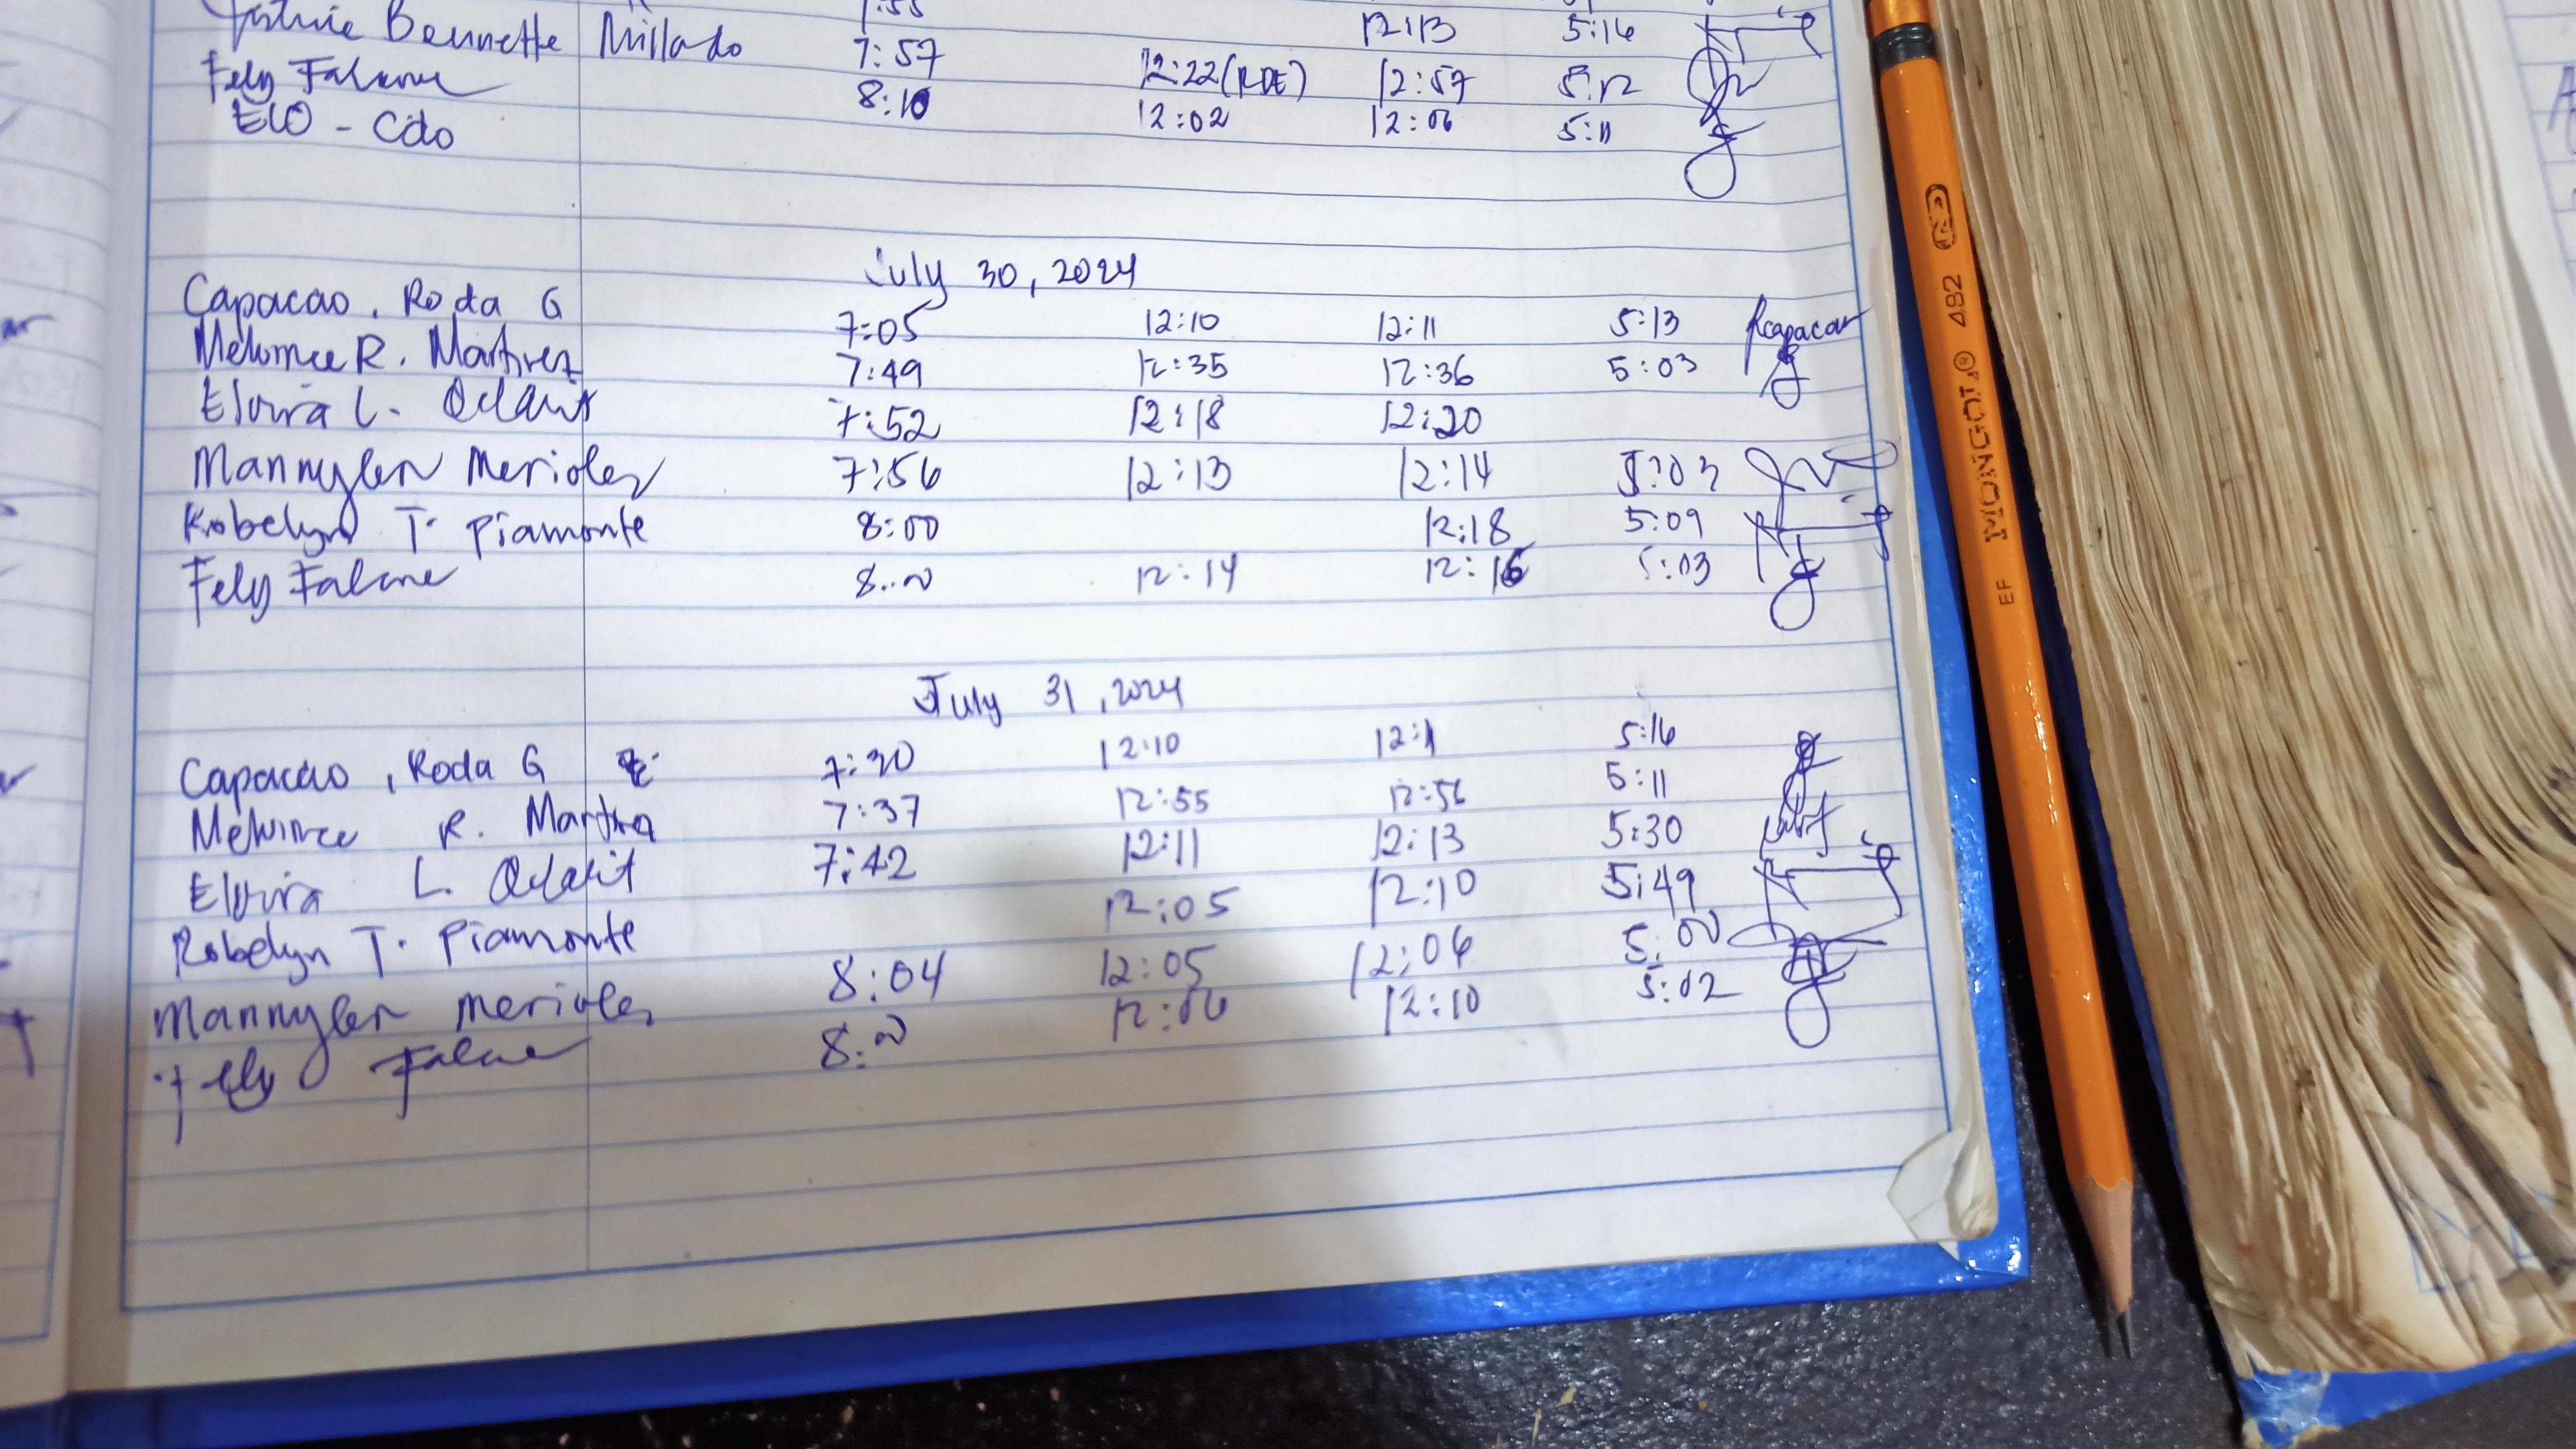 Bennette Millado 7:57 12:13 5:16
Fely Falcone 8:10 12:22 (RDE) 12:57 5:12
ELO - Cdo 12:02 12:06 5:11
July 30, 2024
Capacao, Roda G 7:05 12:10 12:11 5:13 Rcapacao
R. Martirez 7:49 12:35 12:36 5:03
Elvira L. 7:52 12:18 12:20
Mannylen Merioles 7:56 12:13 12:14 5:03
Robelyn T. Piamonte 8:00 12:18 5:09
Fely Falcone 8:00 12:14 12:16 5:03
July 31, 2024
Capacao, Roda G 7:30 12:10 12:11 5:16
R. Martirez 7:37 12:55 12:56 5:11
Elvira L. 7:42 12:11 12:13 5:30
Robelyn T. Piamonte 12:05 12:10 5:49
Mannylen Merioles 8:04 12:05 12:06 5:00
Fely Falcone 8:00 12:06 12:10 5:02
MONGOL® 482
EF